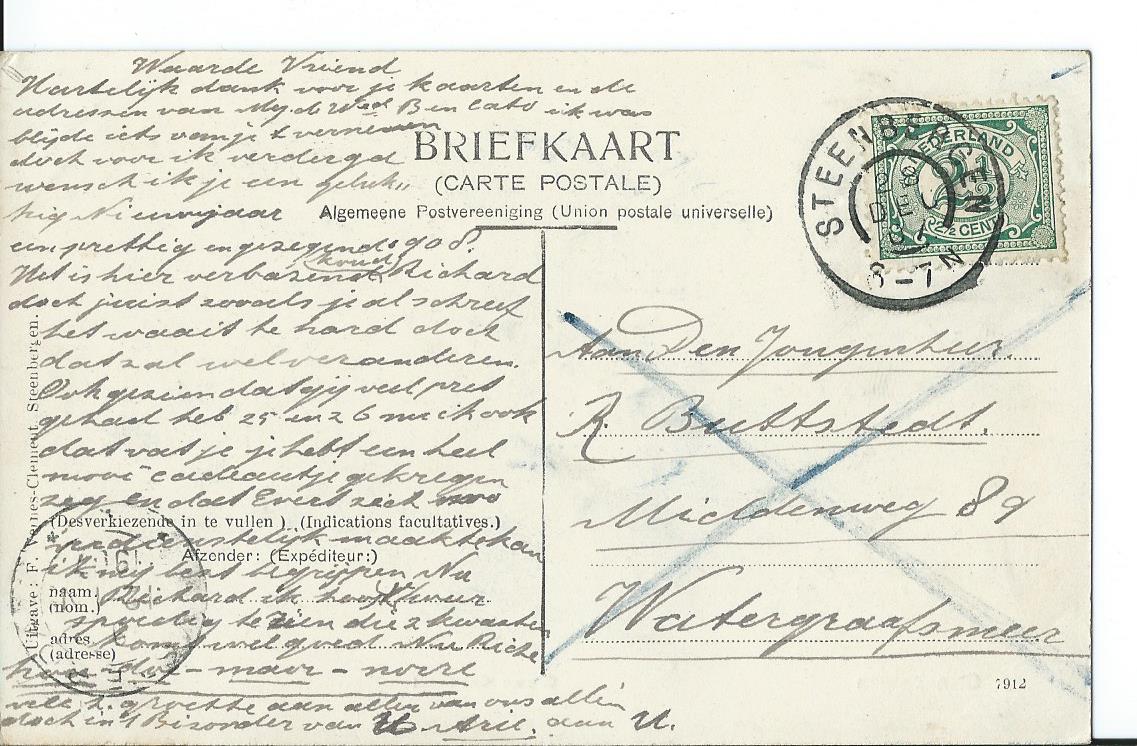 Waarde Vriend
Hartelijk dank voor je kaarten en de
adressen van Mej. de Wed. B en Cato ik was
blijde iets van je te vernemen
doch voor ik verder ga
wensch ik je een geluk„
kig Nieuwjaar
een prettig en gezegend 1908!
Het is hier verbazend koud Richard
doch juist zooals je al schreef
het waait te hard doch
dat zal wel veranderen.
Ook gezien dat gij veel pret
gehad heb 25 en 26 nu ik ook
dat vat je je hebt een heel
mooi cadeautje gekregen
zeg en dat Evert zich zoo
verdienstelijk maakte kan
ik mij best begrijpen Nu
Richard ik hoop weer
spoedig te zien die 2 kwasten
kome wel goed Nu Riche
veel groette aan allen van ons allen
doch in 't Bizonder van Arie aan U.
BRIEFKAART
(CARTE POSTALE)
Algemeene Postvereeniging (Union postale universelle)
(Desverkiezende in te vullen) (Indications facultatives.)
Afzender: (Expéditeur:)
naam.
(nom.)
adres
(adresse)
Uitgave: F. -Clement, Steenbergen.
NEDERLAND
2½
2½ CENT
STEENBERGEN
DEC
6-7N
Aan Den Jongenheer
R. Buttstedt.
Middenweg 89
Watergraafsmeer
7912